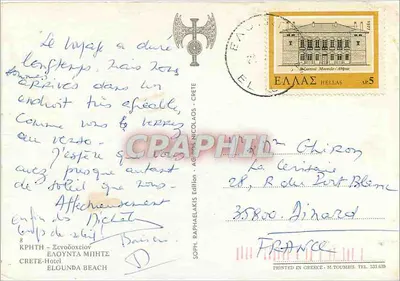 Le voyage a duré
longtemps. Mais nous
sommes
arrivés dans un
endroit très agréable,
comme vous le verrez
au verso.
J'espère que vous
avez presque autant
de soleil que nous.
Affectueusement
Michel
8
ΚΡΗΤΗ - Ξενοδοχείον
ΕΛΟΥΝΤΑ ΜΠΗΤΣ
CRETE-Hotel
ELOUNDA BEACH
SOPH. RAPHAELAKIS Edition - AGHIOS NICOLAOS - CRETE
CPAPHIL
ΕΛΛΑΣ HELLAS ΔΡ 5
28, R du Port Blanc
35800. Dinard
FRANCE
PRINTED IN GREECE - M. TOUMBIS. TEL.